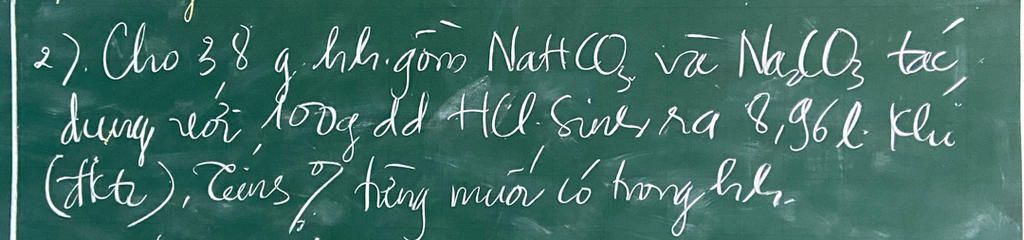 2). Cho 3,8 g hh. gồm NaHCO₃ và Na₂CO₃ tác
dụng với 100g dd HCl. Sinh ra 8,96 l. khí
(đktc), Tính % từng muối có trong hh.